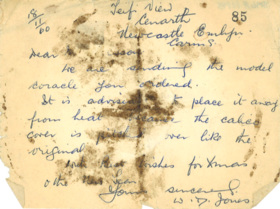 18/11/60
Teifi View
85
Cenarth
Newcastle Emlyn
Carms
Dear
We are sending the model
coracle you ordered.
It is to place it away
from heat the cakes
cover is over like the
original
wishes for Xmas
& the
Yours sincerely
W. D. Jones